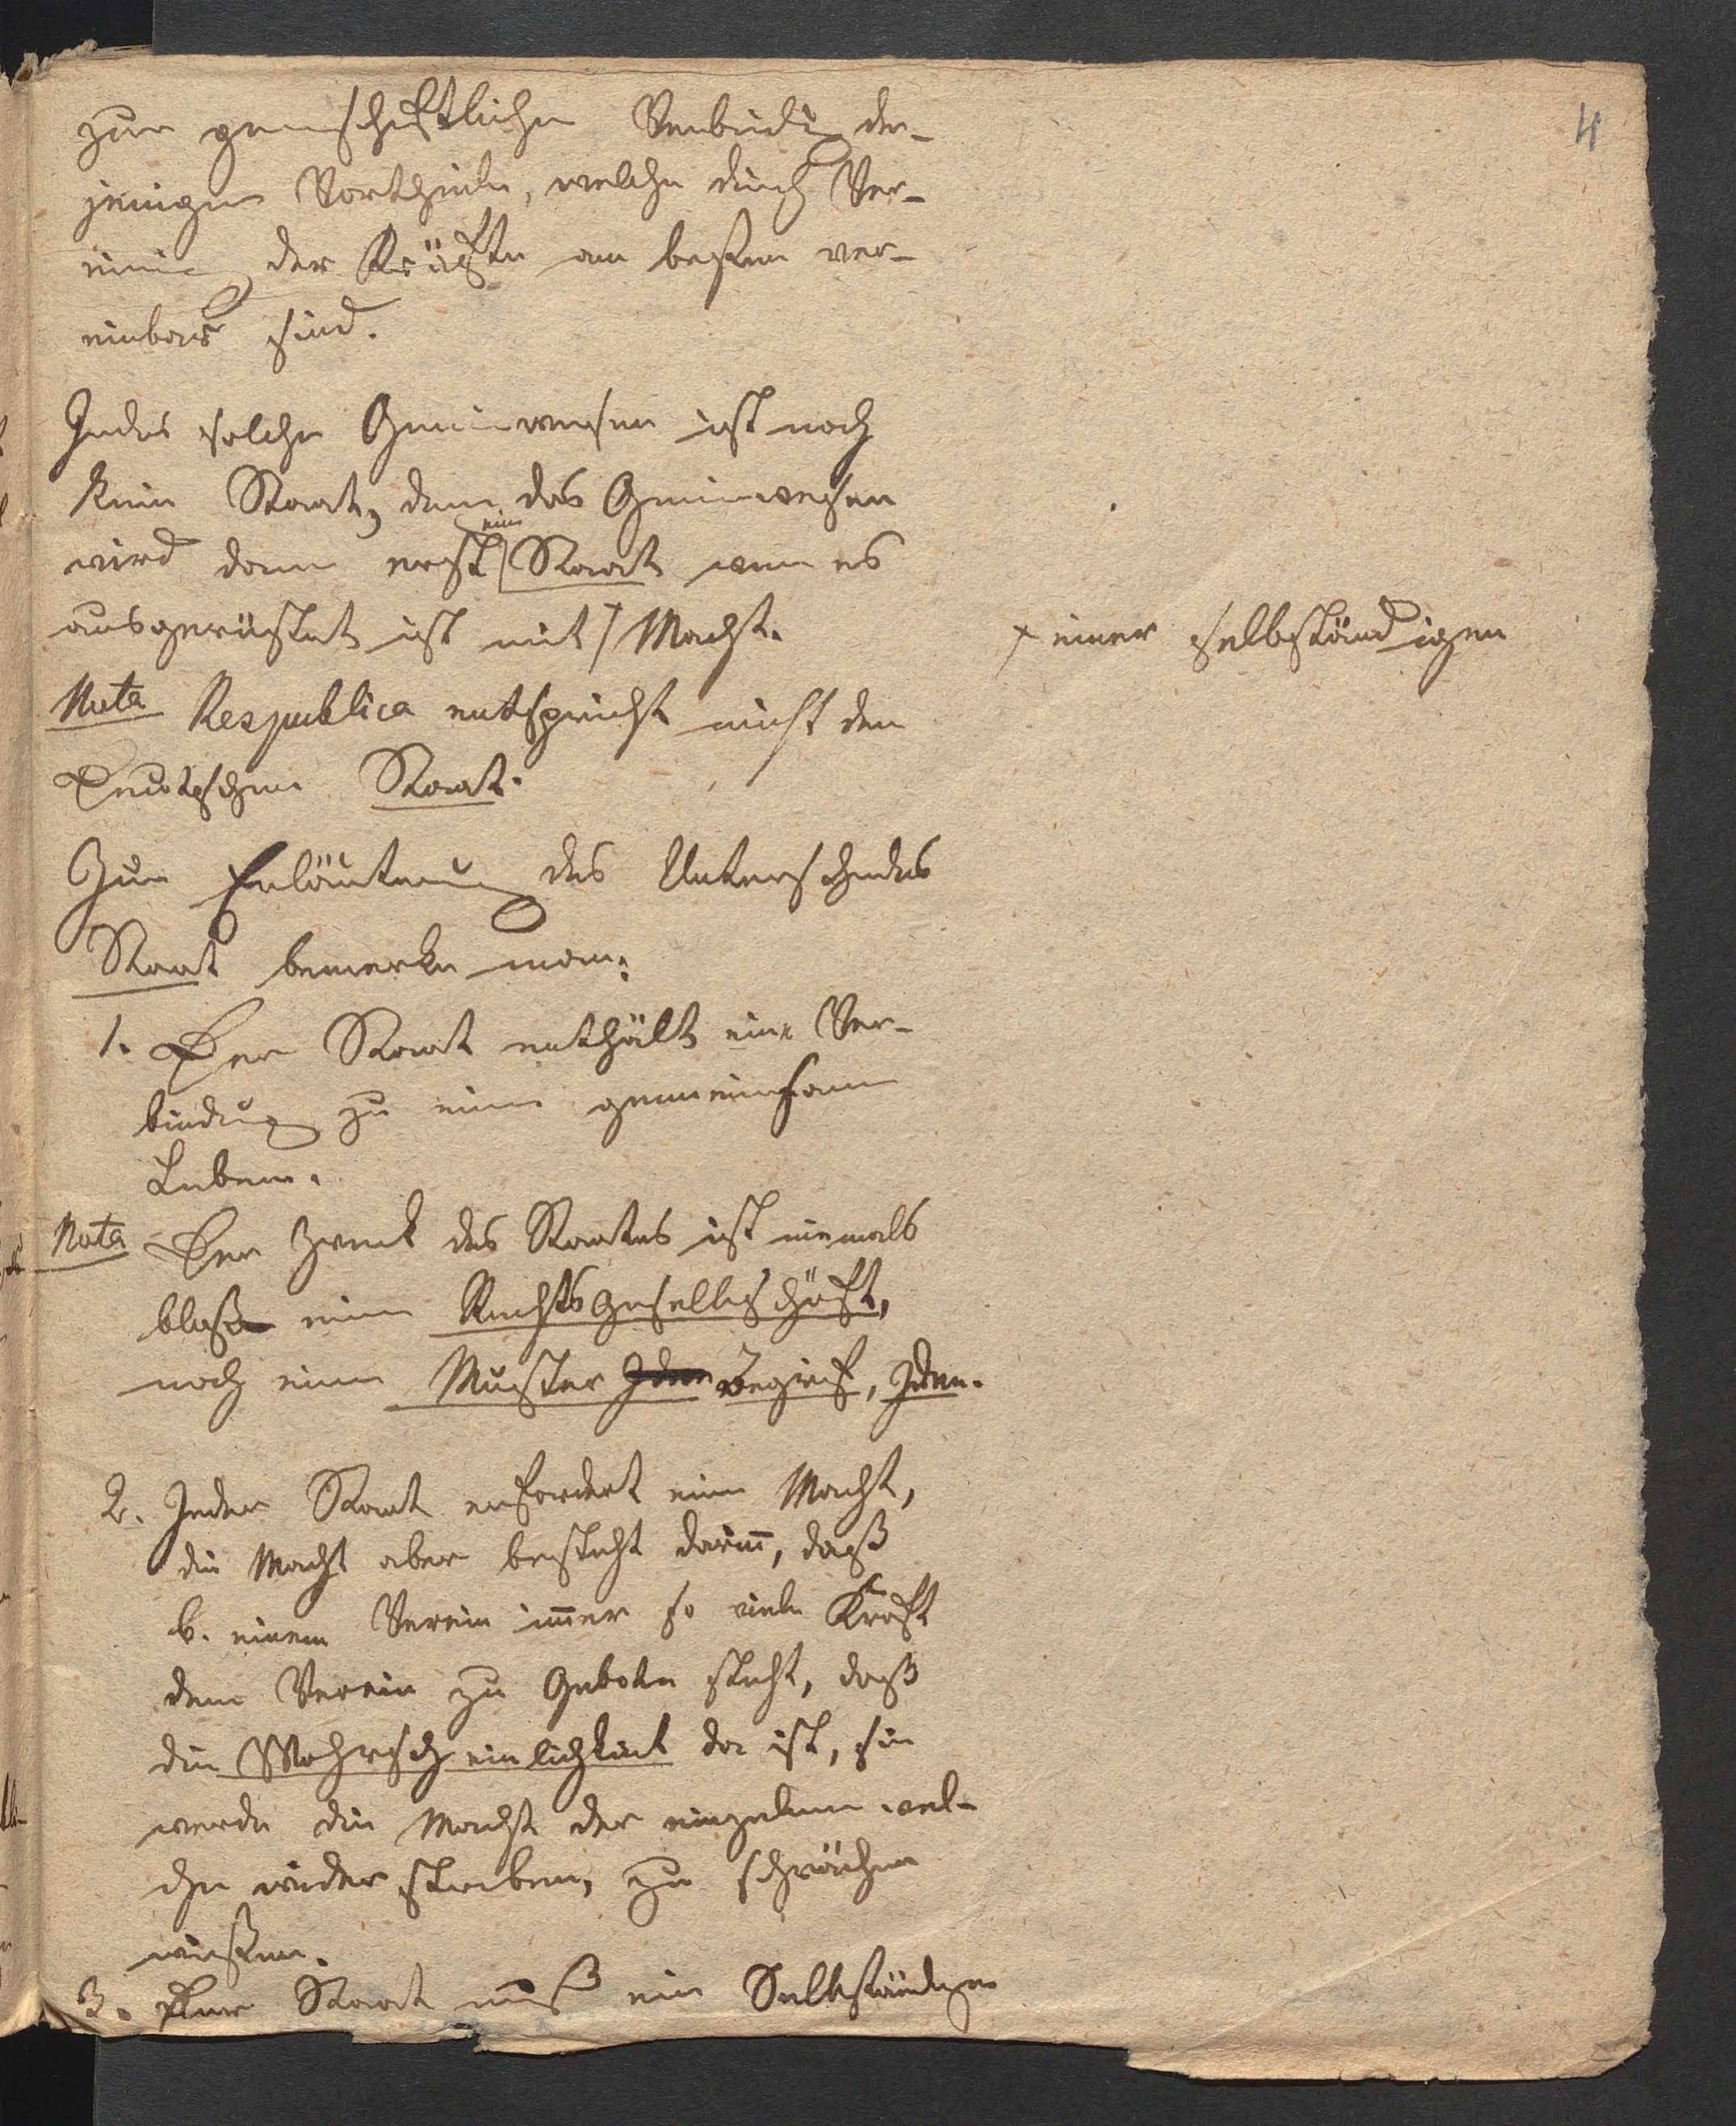 4
zur gemschftlichen Verbindung der-
jenigen Vortheile, welche durch Ver-
einig der Kräfte am besten ver-
einbar sind.
Jedes solche Gemeinwesen ist noch
kein Staat, denn das Gemeinwesen
wird dann erst ein Staat wenn es
ausgerüstet ist mit Macht.
+ einer selbständigen
Nota Respublica entspricht nicht dem
Deutschen Staat.
Zur Erläuterung des Unterschiedes
Staat bemerke man:
1. Der Staat enthält eine Ver-
bindung zu einem gemeinsamen
Leben.
Nota Der Zweck des Staates ist niemals
bloße eine Rechtsgesellschäft,
noch einen Muster Ideen Begrif, Ideen.
2. Jeder Staat erfordert eine Macht,
die Macht aber besteht darin̄, daß
b. einem Verein im̄er so viele Kraft
dem Verein zu Gebote steht, daß
die Wahrscheinlichkeit da ist, sie
werde die Macht der einzelnen wel-
che widerstreben, zu schwächen
wissen.
3. Der Staat muß ein Selbständiger